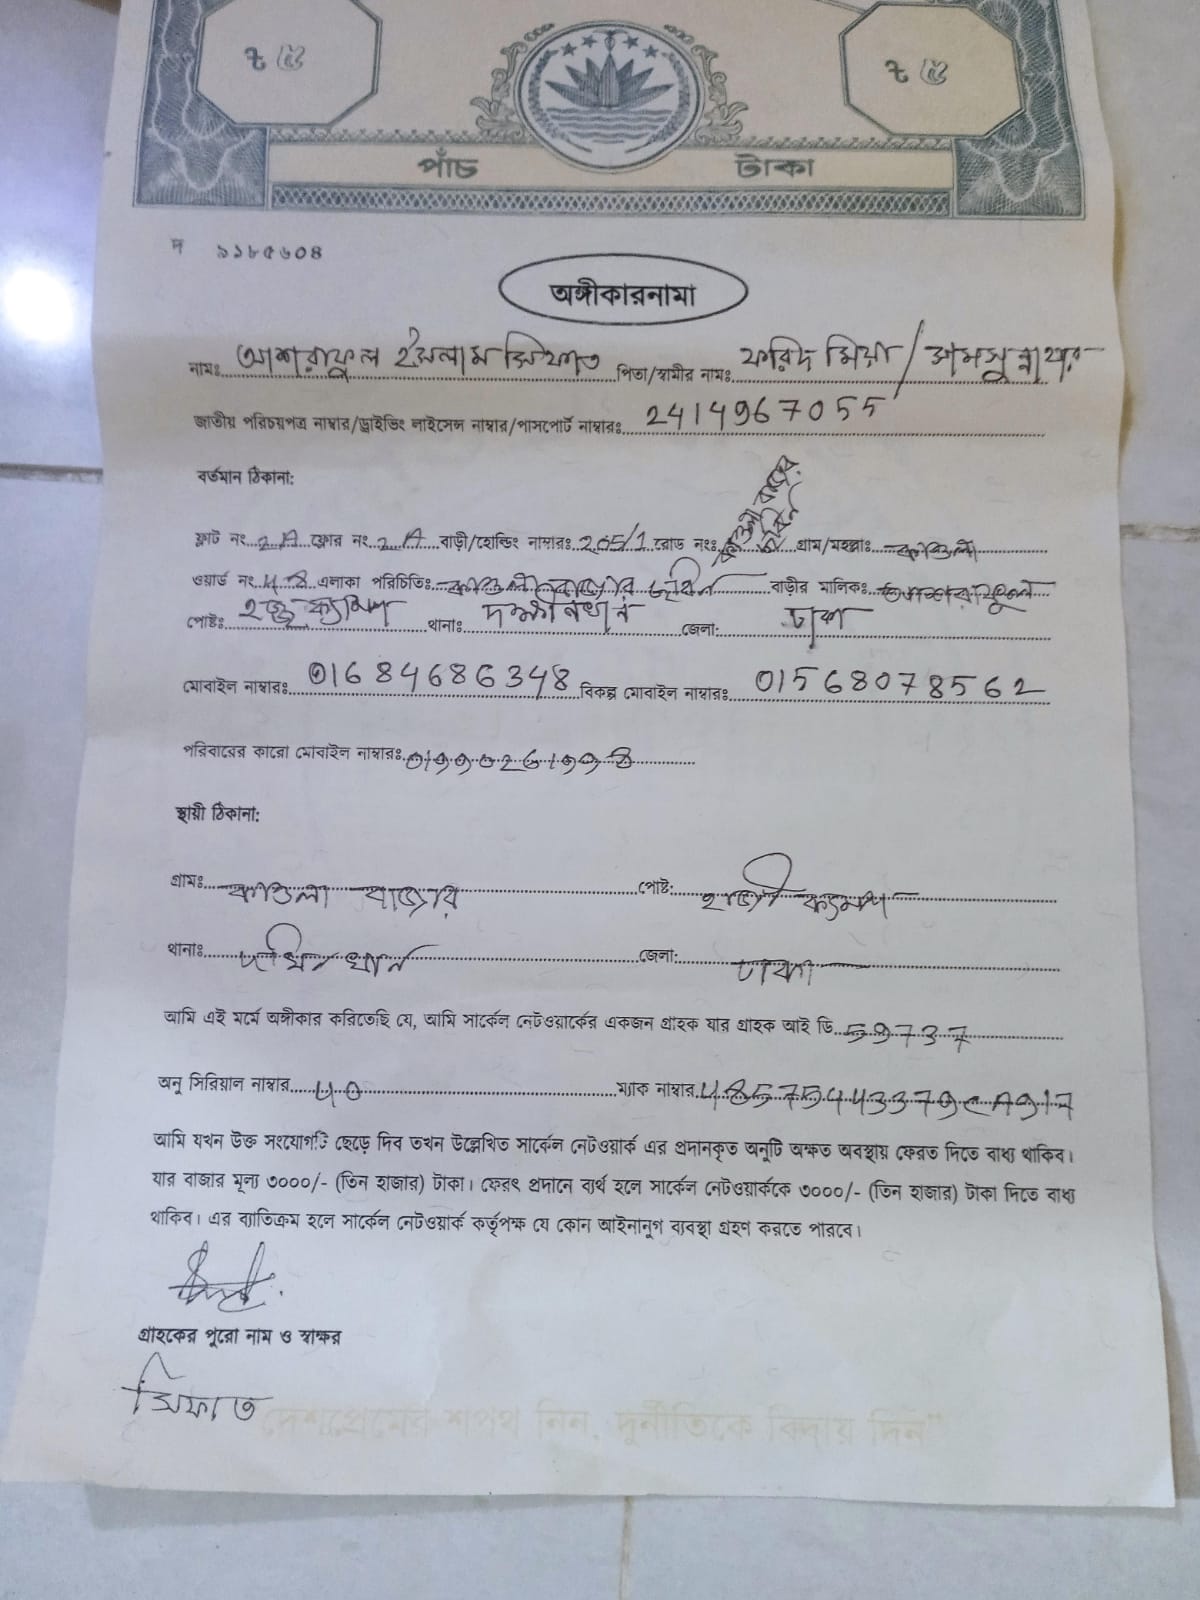 ৳ ৫ ৳ ৫
পাঁচ টাকা
দ ৯১৮৫৬০৪
অঙ্গীকারনামা
নামঃ আশরাফুল ইসলাম সিফাত পিতা/স্বামীর নামঃ ফরিদ মিয়া / সামসুন্নাহার
জাতীয় পরিচয়পত্র নাম্বার/ড্রাইভিং লাইসেন্স নাম্বার/পাসপোর্ট নাম্বারঃ 2414967055
বর্তমান ঠিকানা:
ফ্লাট নং 2A ফ্লোর নং 2A বাড়ী/হোল্ডিং নাম্বারঃ 205/1 রোড নংঃ গ্রাম/মহল্লাঃ কাওলা
ওয়ার্ড নং এলাকা পরিচিতিঃ কাওলা বাজার বাড়ীর মালিকঃ
পোষ্টঃ হজ্জ ক্যাম্প থানাঃ দক্ষীনখান জেলা: ঢাকা
মোবাইল নাম্বারঃ 01684686348 বিকল্প মোবাইল নাম্বারঃ 01568078562
পরিবারের কারো মোবাইল নাম্বারঃ
স্থায়ী ঠিকানা:
গ্রামঃ কাওলা বাজার পোষ্ট: হাজী ক্যাম্প
থানাঃ দখিনখান জেলা: ঢাকা
আমি এই মর্মে অঙ্গীকার করিতেছি যে, আমি সার্কেল নেটওয়ার্কের একজন গ্রাহক যার গ্রাহক আই ডি 59737
অনু সিরিয়াল নাম্বার ম্যাক নাম্বার
আমি যখন উক্ত সংযোগটি ছেড়ে দিব তখন উল্লেখিত সার্কেল নেটওয়ার্ক এর প্রদানকৃত অনুটি অক্ষত অবস্থায় ফেরত দিতে বাধ্য থাকিব।
যার বাজার মূল্য ৩০০০/- (তিন হাজার) টাকা। ফেরৎ প্রদানে ব্যর্থ হলে সার্কেল নেটওয়ার্ককে ৩০০০/- (তিন হাজার) টাকা দিতে বাধ্য
থাকিব। এর ব্যাতিক্রম হলে সার্কেল নেটওয়ার্ক কর্তৃপক্ষ যে কোন আইনানুগ ব্যবস্থা গ্রহণ করতে পারবে।
গ্রাহকের পুরো নাম ও স্বাক্ষর
সিফাত
দেশপ্রেমের শপথ নিন, দুর্নীতিকে বিদায় দিন"